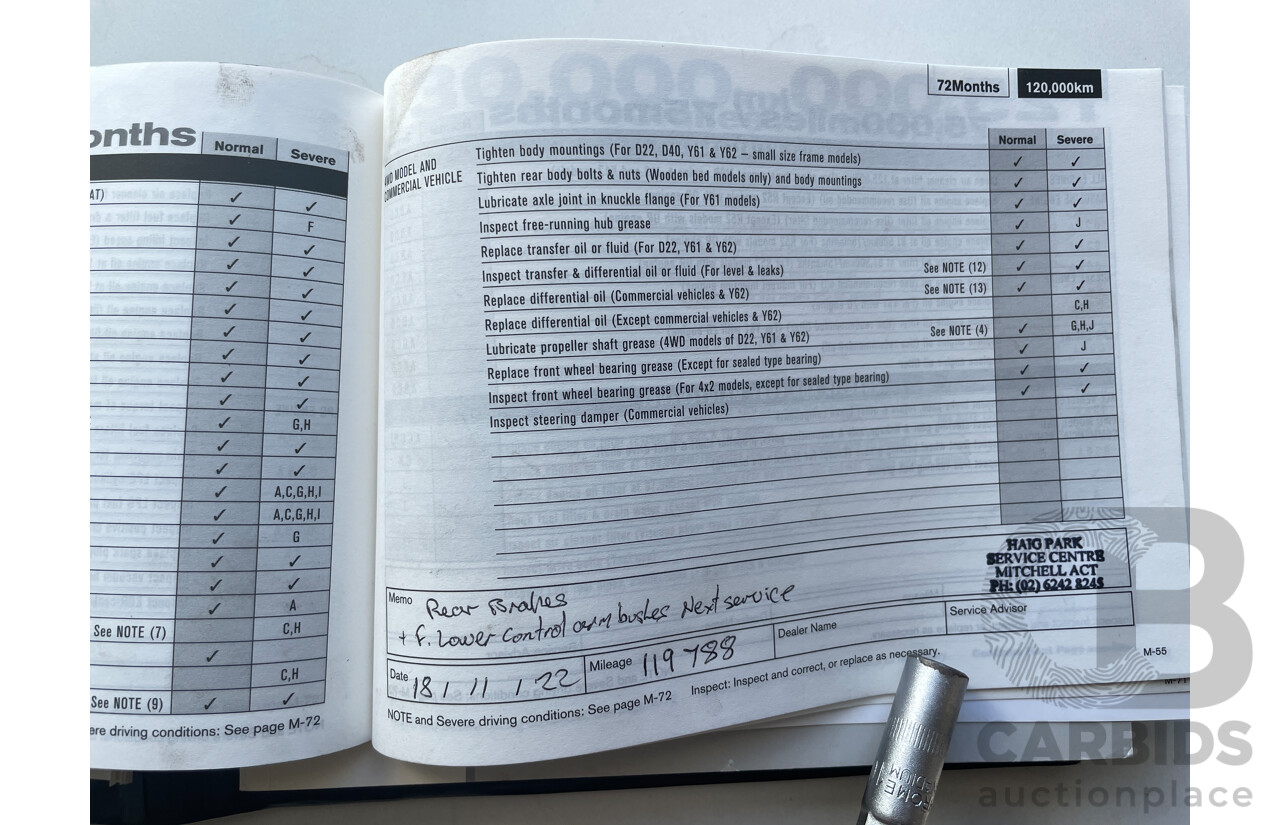 onths
Normal Severe
AT) ✓ ✓
✓ F
✓ ✓
✓ ✓
✓ ✓
✓ ✓
✓ ✓
✓ ✓
✓ ✓
✓ ✓
✓ G,H
✓ ✓
✓ ✓
✓ A,C,G,H,I
✓ A,C,G,H,I
✓ G
✓ ✓
✓ ✓
✓ A
See NOTE (7) C,H
✓
C,H
See NOTE (9) ✓ ✓
ere driving conditions: See page M-72
72Months 120,000km
Normal Severe
4WD MODEL AND
COMMERCIAL VEHICLE
Tighten body mountings (For D22, D40, Y61 & Y62 – small size frame models) ✓ ✓
Tighten rear body bolts & nuts (Wooden bed models only) and body mountings ✓ ✓
Lubricate axle joint in knuckle flange (For Y61 models) ✓ ✓
Inspect free-running hub grease ✓ J
Replace transfer oil or fluid (For D22, Y61 & Y62) ✓ ✓
Inspect transfer & differential oil or fluid (For level & leaks) See NOTE (12) ✓ ✓
Replace differential oil (Commercial vehicles & Y62) See NOTE (13) ✓ ✓
Replace differential oil (Except commercial vehicles & Y62) C,H
Lubricate propeller shaft grease (4WD models of D22, Y61 & Y62) See NOTE (4) ✓ G,H,J
Replace front wheel bearing grease (Except for sealed type bearing) ✓ J
Inspect front wheel bearing grease (For 4x2 models, except for sealed type bearing) ✓ ✓
Inspect steering damper (Commercial vehicles) ✓ ✓
HAIG PARK
SERVICE CENTRE
MITCHELL ACT
PH: (02) 6242 8245
Memo Rear Brakes
+ F. Lower Control arm bushes Next service
Date 18 / 11 / 22 Mileage 119788 Dealer Name Service Advisor
NOTE and Severe driving conditions: See page M-72 Inspect: Inspect and correct, or replace as necessary.
M-55
M-71
CARBIDS
auctionplace